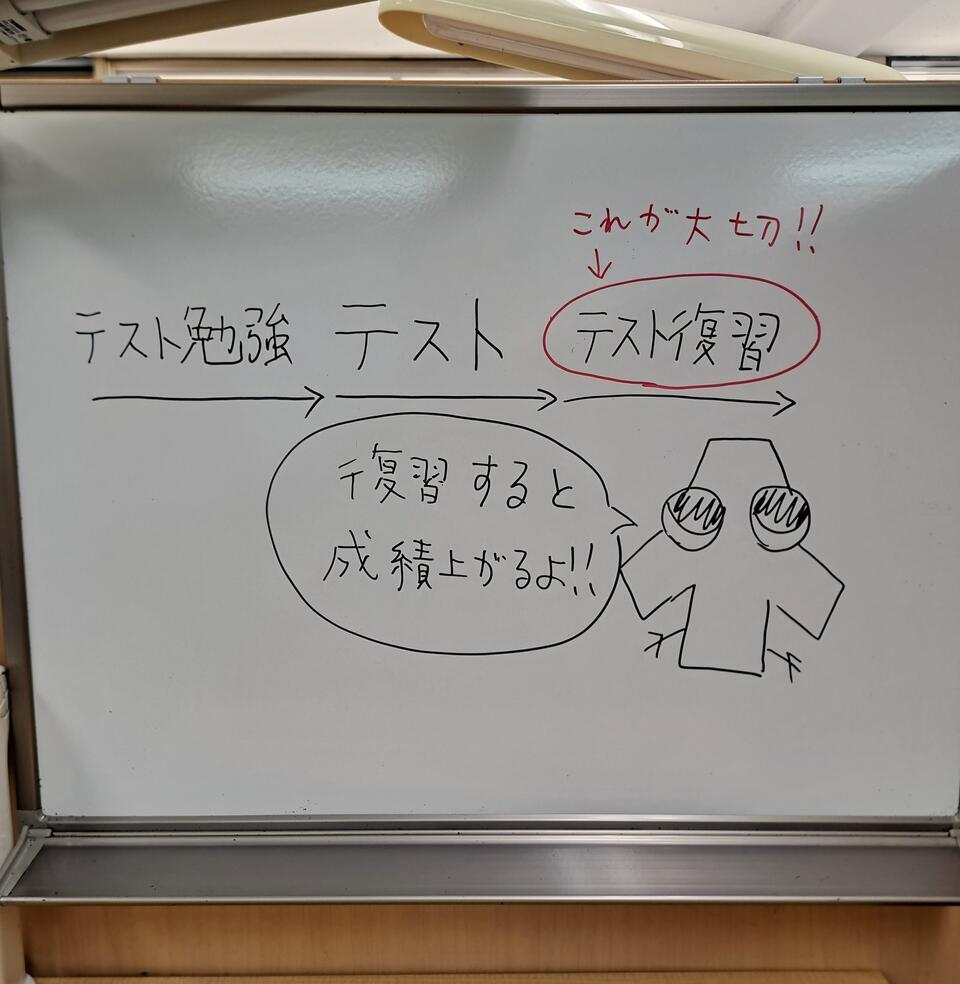 これが大切!!
↓
テスト勉強 テスト テスト復習
復習すると
成績上がるよ!!